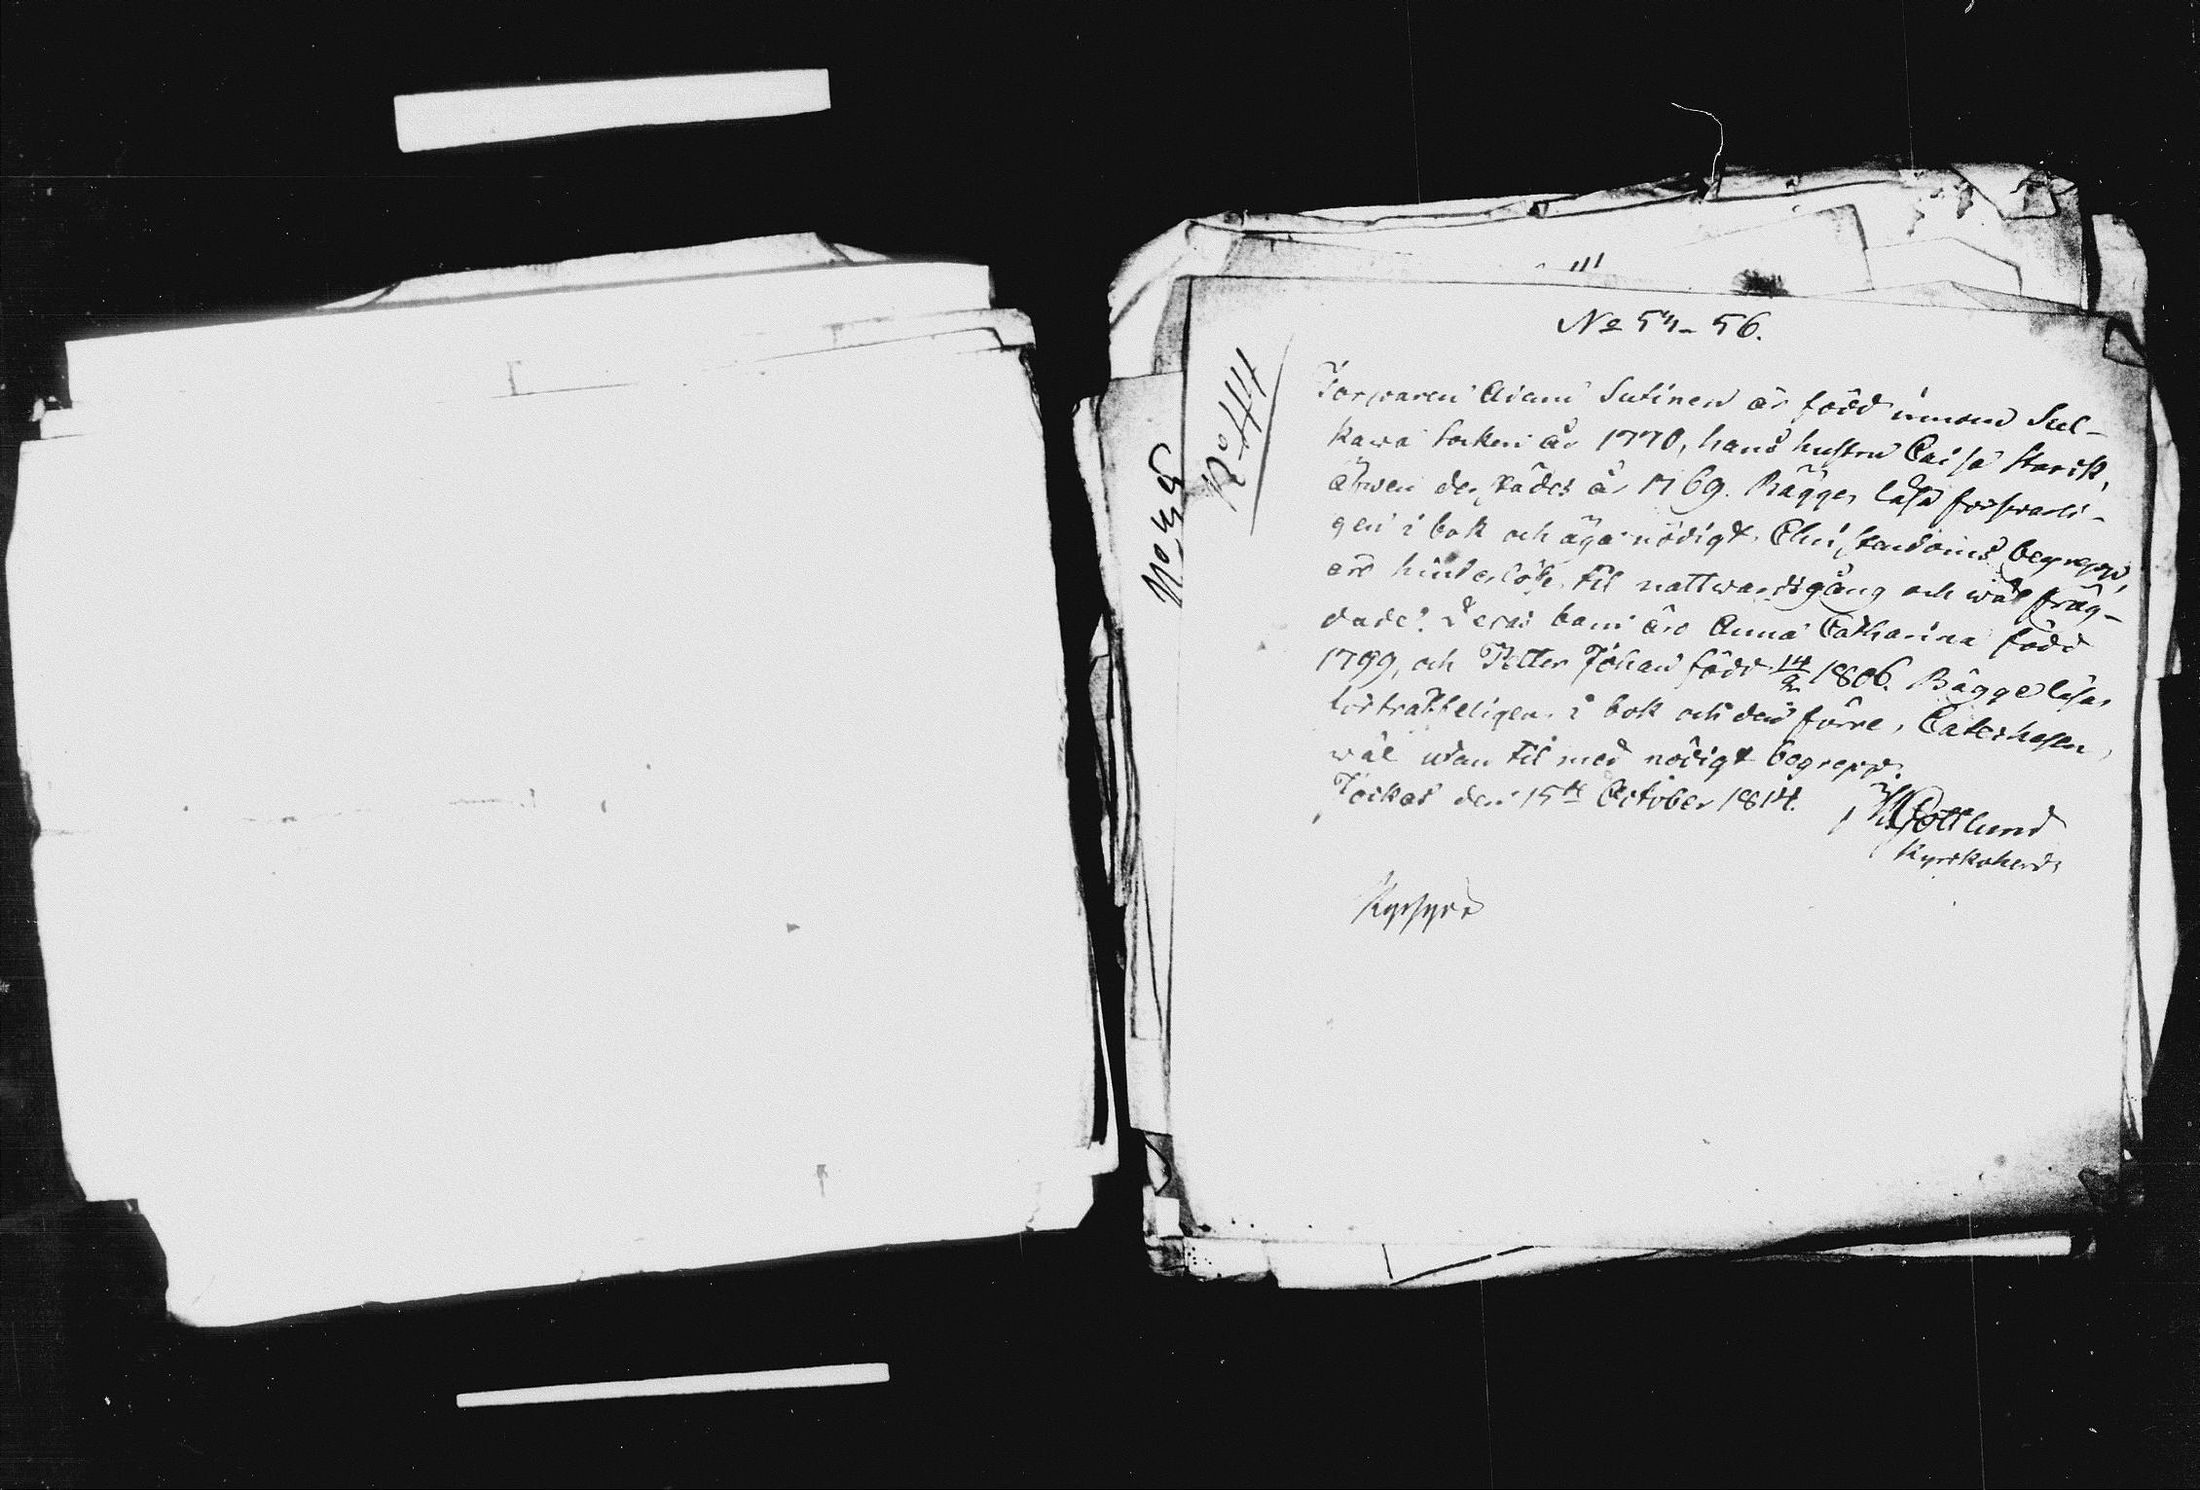 No 54-56.
No 44
No 58
Torparen Adam Sutinen är född innom Sul-
kawa Socken år 1770, hans hustru Caisa Starck,
äfwen derstädes år 1769. Bägge läsa försvarli-
gen i bok och äga nödigt Christendoms begrepp,
äro hinderlöse til nattwardsgång och wäl fräg-
dade. Deras barn äro Anna Catharina född
1799, och Petter Johan född 14/2 1806. Bägge läsa
förträffeligen i bok och den förre, Catechesen,
wäl utan til med nödigt begrepp.
Jockas den 15de October 1814.
Gottlund
Kyrckoherde